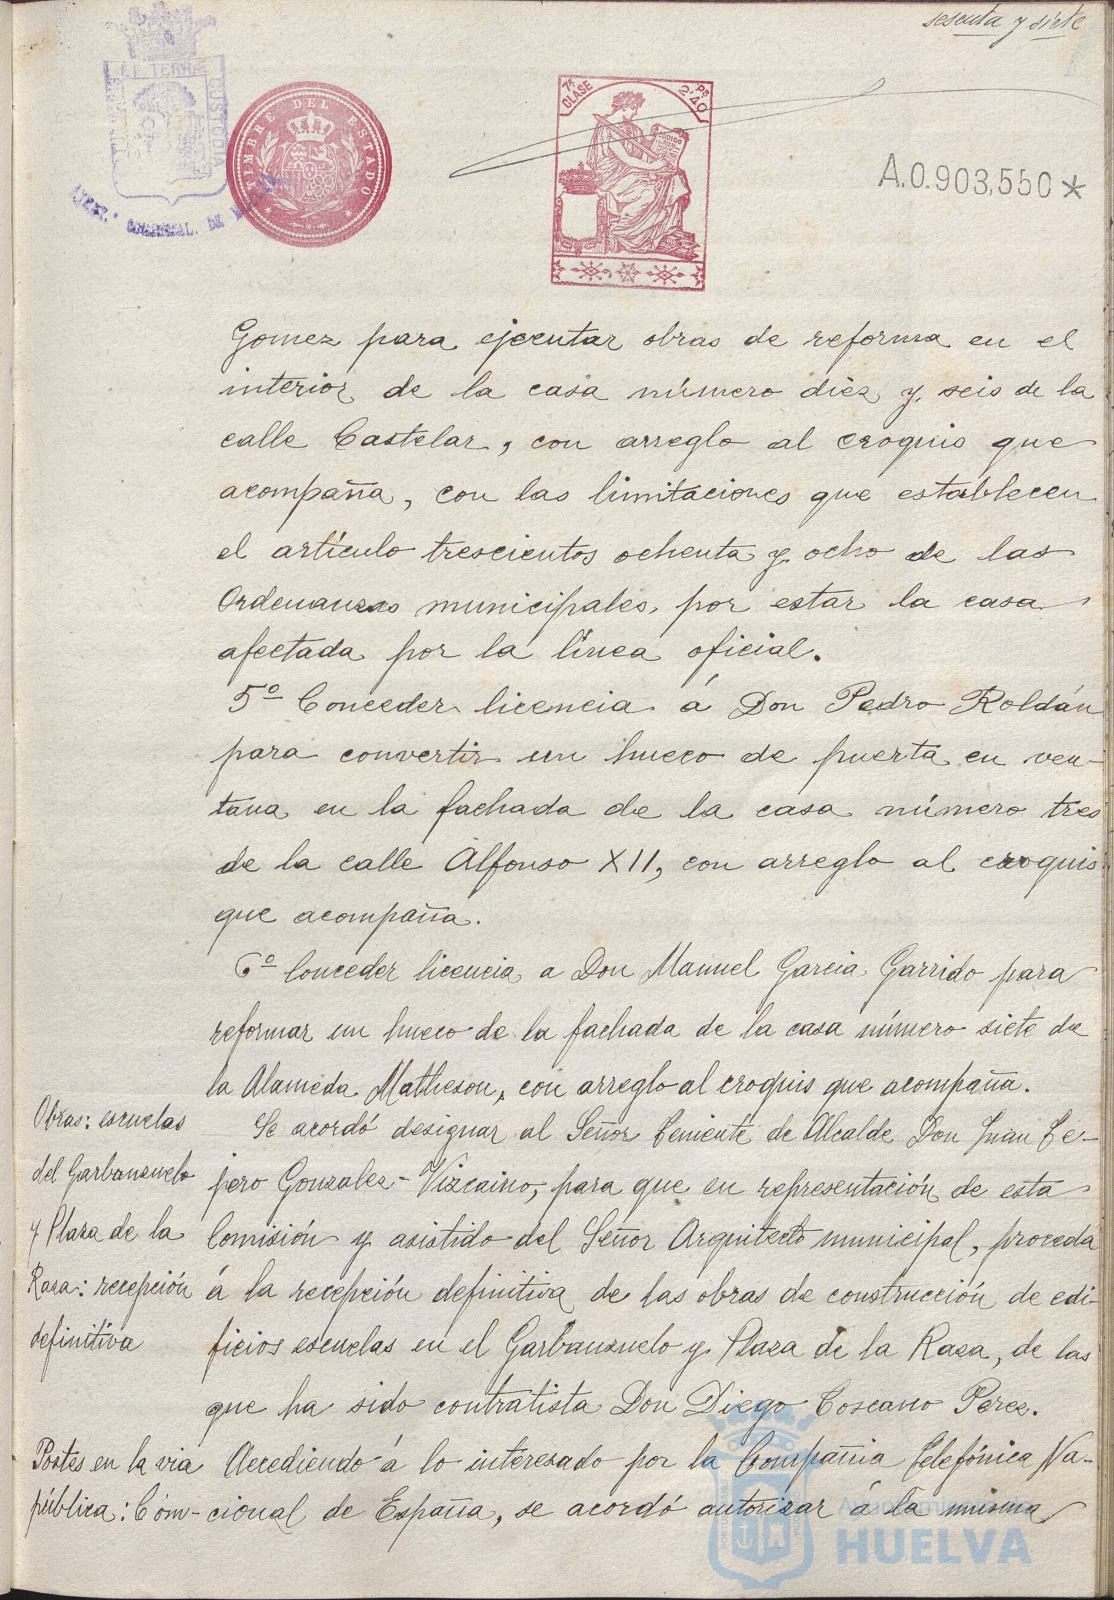 sesenta y siete
EL TERRÆ
CUSTODIA
TIMBRE DEL ESTADO
7ª CLASE
2'40 Ps
CODIGO
A.0.903,550*
Gomez para ejecutar obras de reforma en el
interior de la casa número diez y seis de la
calle Castelar, con arreglo al croquis que
acompaña, con las limitaciones que establecen
el artículo trescientos ochenta y ocho de las
Ordenanzas municipales, por estar la casa
afectada por la línea oficial.
5º Conceder licencia á Don Pedro Roldán
para convertir un hueco de puerta en ven-
tana en la fachada de la casa número tres
de la calle Alfonso XII, con arreglo al croquis
que acompaña.
6º Conceder licencia a Don Manuel Garcia Garrido para
reformar un hueco de la fachada de la casa número siete de
la Alameda Matheson, con arreglo al croquis que acompaña.
Obras: escuelas
del Garbanzuelo
y Plaza de la
Raza: recepción
definitiva
Se acordó designar al Señor Teniente de Alcalde Don Juan Te-
jero Gonzalez-Vizcaino, para que en representación de esta
Comisión y asistido del Señor Arquitecto municipal, proceda
á la recepción definitiva de las obras de construcción de edi-
ficios escuelas en el Garbanzuelo y Plaza de la Raza, de las
que ha sido contratista Don Diego Toscano Perez.
Postes en la via
pública: Com-
Accediendo á lo interesado por la Compañia Telefónica Na-
cional de España, se acordó autorizar á la misma
Ayuntamiento de
HUELVA